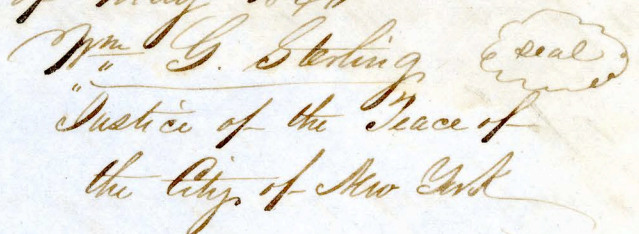 of May
Wm G. Sterling seal
"Justice of the Peace of
the City of New York